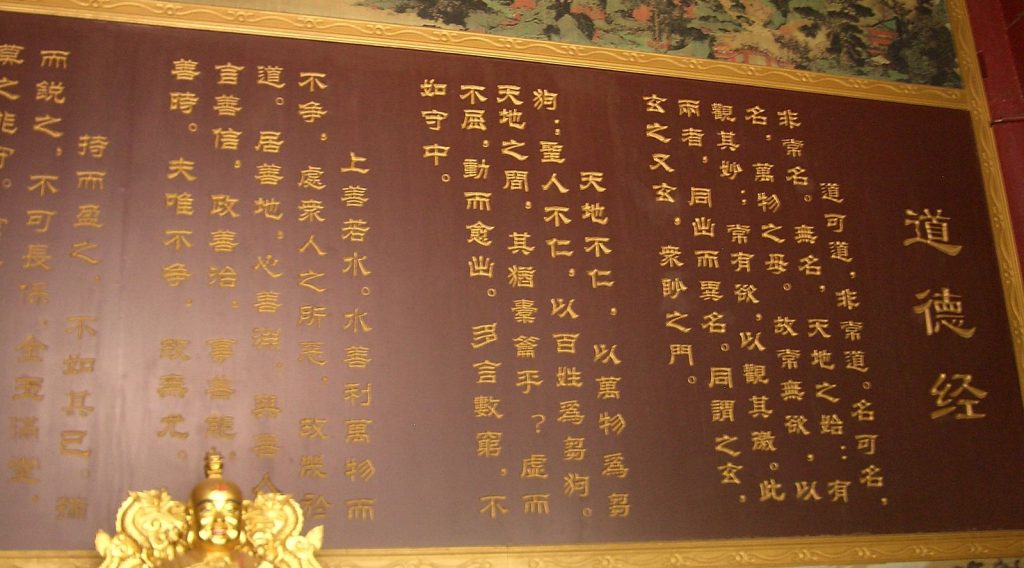 道德经
道可道，非常道。名可名，
非常名。無名，天地之始：有
名，萬物之母。故常無欲，以
觀其妙：常有欲，以觀其徼。此
兩者，同出而異名。同謂之玄，
玄之又玄，衆眇之門。
天地不仁，以萬物爲芻
狗：聖人不仁，以百姓爲芻狗。
天地之間，其猶橐籥乎？虛而
不屈，動而愈出。多言數窮，不
如守中。
上善若水。水善利萬物而
不争，處衆人之所惡，故幾於
道。居善地，心善渊，與善人
言善信，政善治，事善能，
善時。夫唯不争，故無尤。
持而盈之，不如其已。揣
而銳之，不可長保．金玉滿堂，
莫之能守。